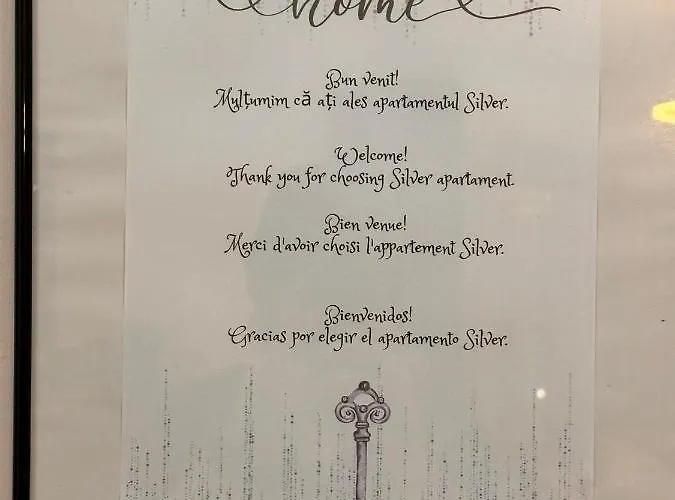 home
Bun venit!
Mulțumim că ați ales apartamentul Silver.
Welcome!
Thank you for choosing Silver apartament.
Bien venue!
Merci d'avoir choisi l'appartement Silver.
Bienvenidos!
Gracias por elegir el apartamento Silver.